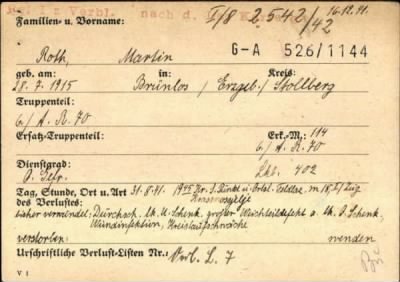 nach d.
Familien- u. Vorname: I/8 2542/42 16.12.41.
Roth, Martin G-A 526/1144
geb. am: in: Kreis:
28.7.1915 Brünlos / Erzgeb. / Stollberg
Truppenteil:
6./A.R.70
Ersatz-Truppenteil: Erk.-M.: 114
6./A.R.70
Dienstgrad
O. Lkl. 402
Tag, Stunde, Ort u. Art 31.8.41 19 45 Kr. S. Pünkt u. Ortsl. Feldlaz. m 18,5/Zug
des Verlustes:
bisher vermeldet: Durchsch. lk. U. Schenk. großer Weichteildefekt a. lk. O. Schenk.
Wundinfektion, Kreislaufschwäche
verstorben wenden
Urschriftliche Verlust-Listen Nr.: Verl. L. 7
V 1